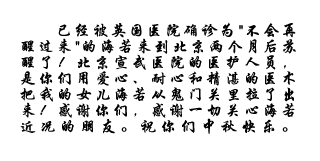 已经被英国医院确诊为"不会再
醒过来"的海若来到北京两个月后苏
醒了！北京宣武医院的医护人员，
是你们用爱心、耐心和精湛的医术
把我的女儿海若从鬼门关里拉了出
来！感谢你们，感谢一切关心海若
近况的朋友。祝你们中秋快乐。